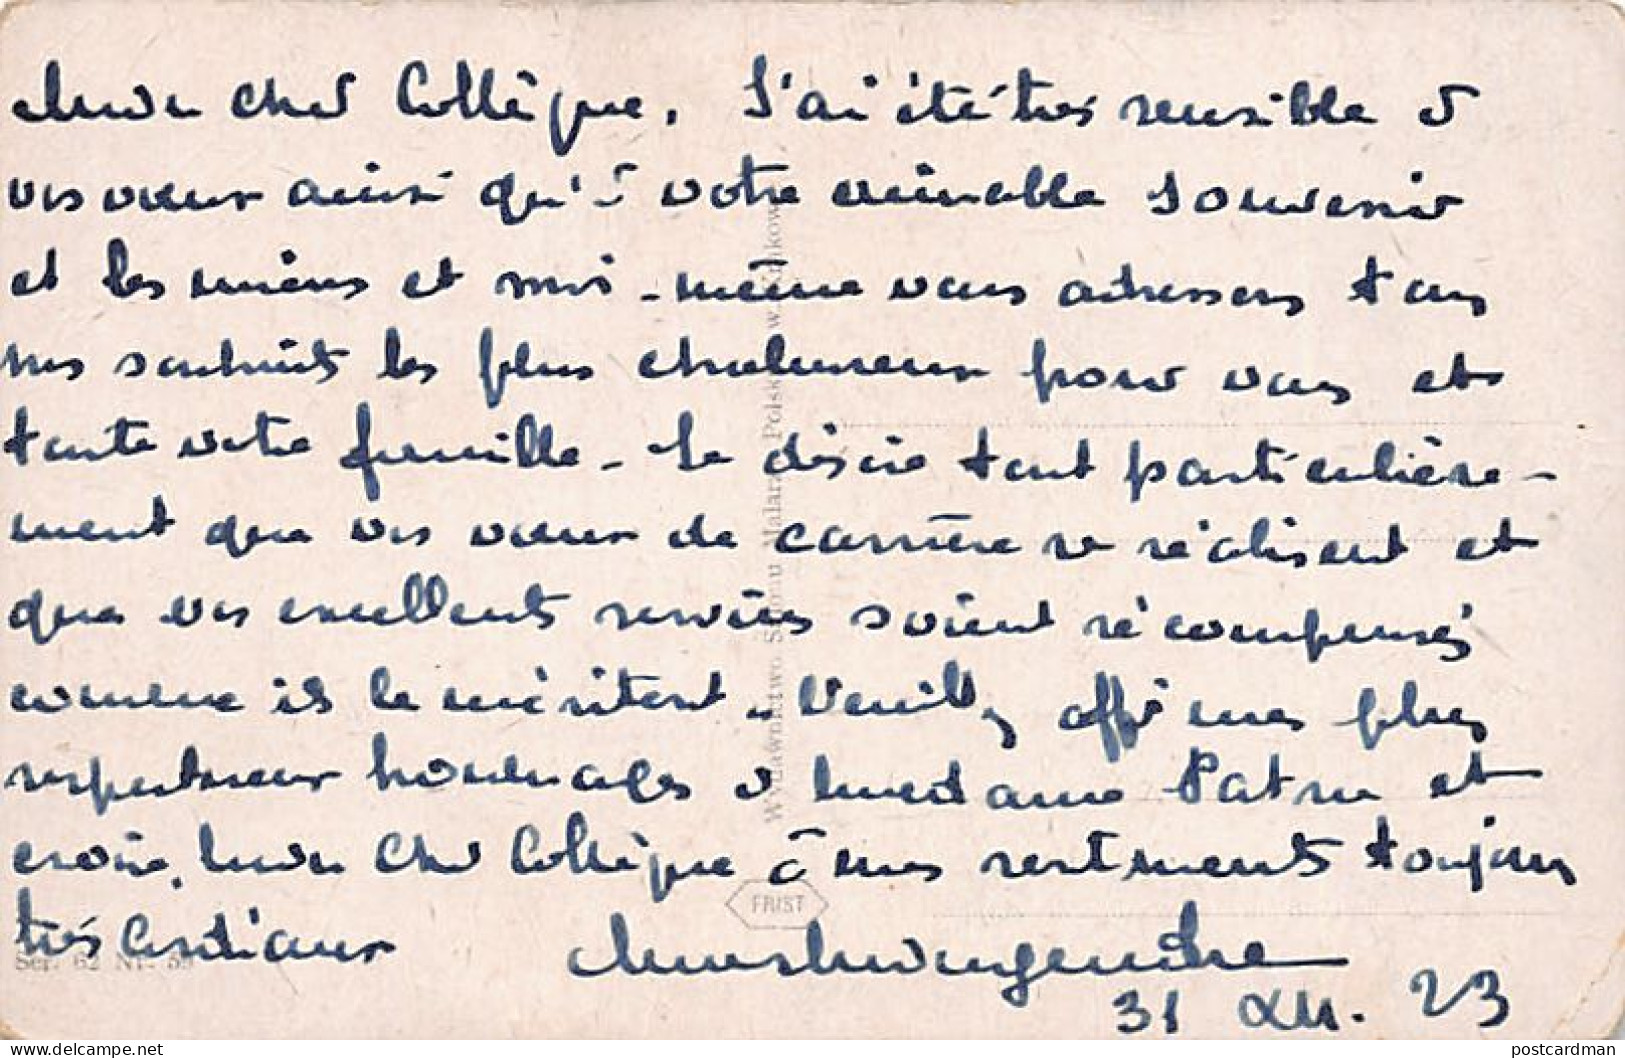 Mon cher Collègue, J'ai été très sensible à
vos vœux ainsi qu'à votre aimable souvenir
et les miens et moi-même vous adressons tous
nos souhaits les plus chaleureux pour vous et
toute votre famille - Je désire tout particulière-
ment que vos vœux de carrière se réalisent et
que vos excellents services soient récompensés
comme ils le méritent. Veuillez offrir mes plus
respectueux hommages à Madame Patru et
croire, mon cher Collègue à mes sentiments toujours
très cordiaux
31 XII. 23
Wydawnictwo Salonu Malarzy Polskich w Krakowie
FRIST
Ser. 62 Nr. 59
postcardman